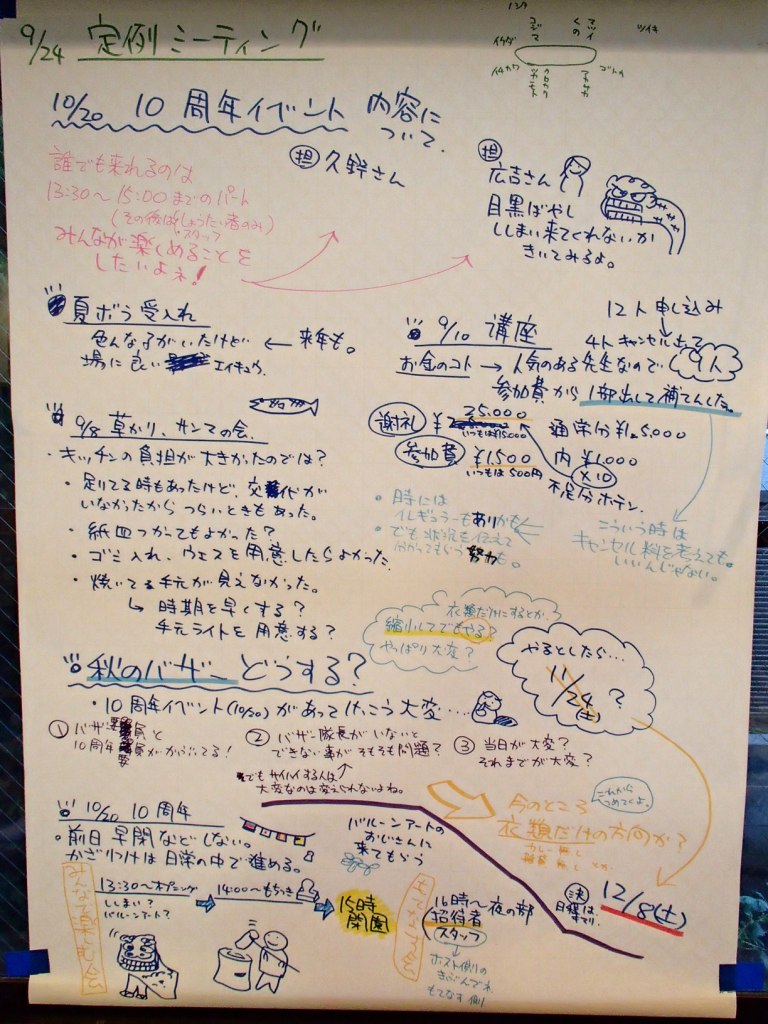 9/24 定例ミーティング
イケダ
イチカワ
ツイキ
ゴトウ
10/20 10周年イベント 内容に
ついて.
担 久野さん
担
広吉さん
目黒ばやし
ししまい来てくれないか
きいてみるよ。
誰でも来れるのは
13:30〜15:00までのパート
(その後はしょうたい者のみ)
・スタッフ
みんなが楽しめることを
したいよネ!
夏ボラ受入れ
色んな子がいたけど ← 来年も。
場に良い エイキョウ.
9/10 講座
12人申し込み
4人キャンセル出て
9人
お金のコト → 人気のある先生なので
参加費から1部出して補てんした。
謝礼 ¥25.000
いつもは¥15000
通常分¥15,000
参加費 ¥1500 内 ¥1.000
いつもは500円
×10
不足分ホテン.
・時には
イレギュラーもありかも
・でも状況を伝えて
分かってもらう努力も。
こういう時は
キャンセル料を考えても。
いいんじゃない。
9/8 草かり、サンマの会.
・キッチンの負担が大きかったのでは?
・足りてる時もあったけど、交代が
いなかったからつらいときもあった。
・紙皿つかってもよかった?
・ゴミ入れ、ウエスを用意したらよかった.
・焼いてる手元が見えなかった。
↳ 時期を早くする?
手元ライトを用意する?
衣類だけにするとか.
縮小してでもやる?
やっぱり大変?
やるとしたら…
11/24(土)?
秋のバザーどうする?
・10周年イベント(10/20)があってけっこう大変…
① バザー委員と
10周年委員がかぶってる!
② バザー隊長がいないと
できない事がそもそも問題?
でもサイハイする人は
大変なのは変えられないよね。
③ 当日が大変?
それまでが大変?
これから
つめてくよ。
今のところ
衣類だけの方向か?
カレー無し
雑貨無しとか
決 12/8(土)
日程は
10/20 10周年
・前日 早閉などしない。
かざりつけは日常の中で進める。
バルーンアートの
おじさんに
来てもらう
13:30〜オープニング
ししまい?
バルーンアート?
14:00〜もちつき
15時
閉園
16時〜夜の部
招待者
スタッフ
ホスト側の
きぶんでね
もてなす側